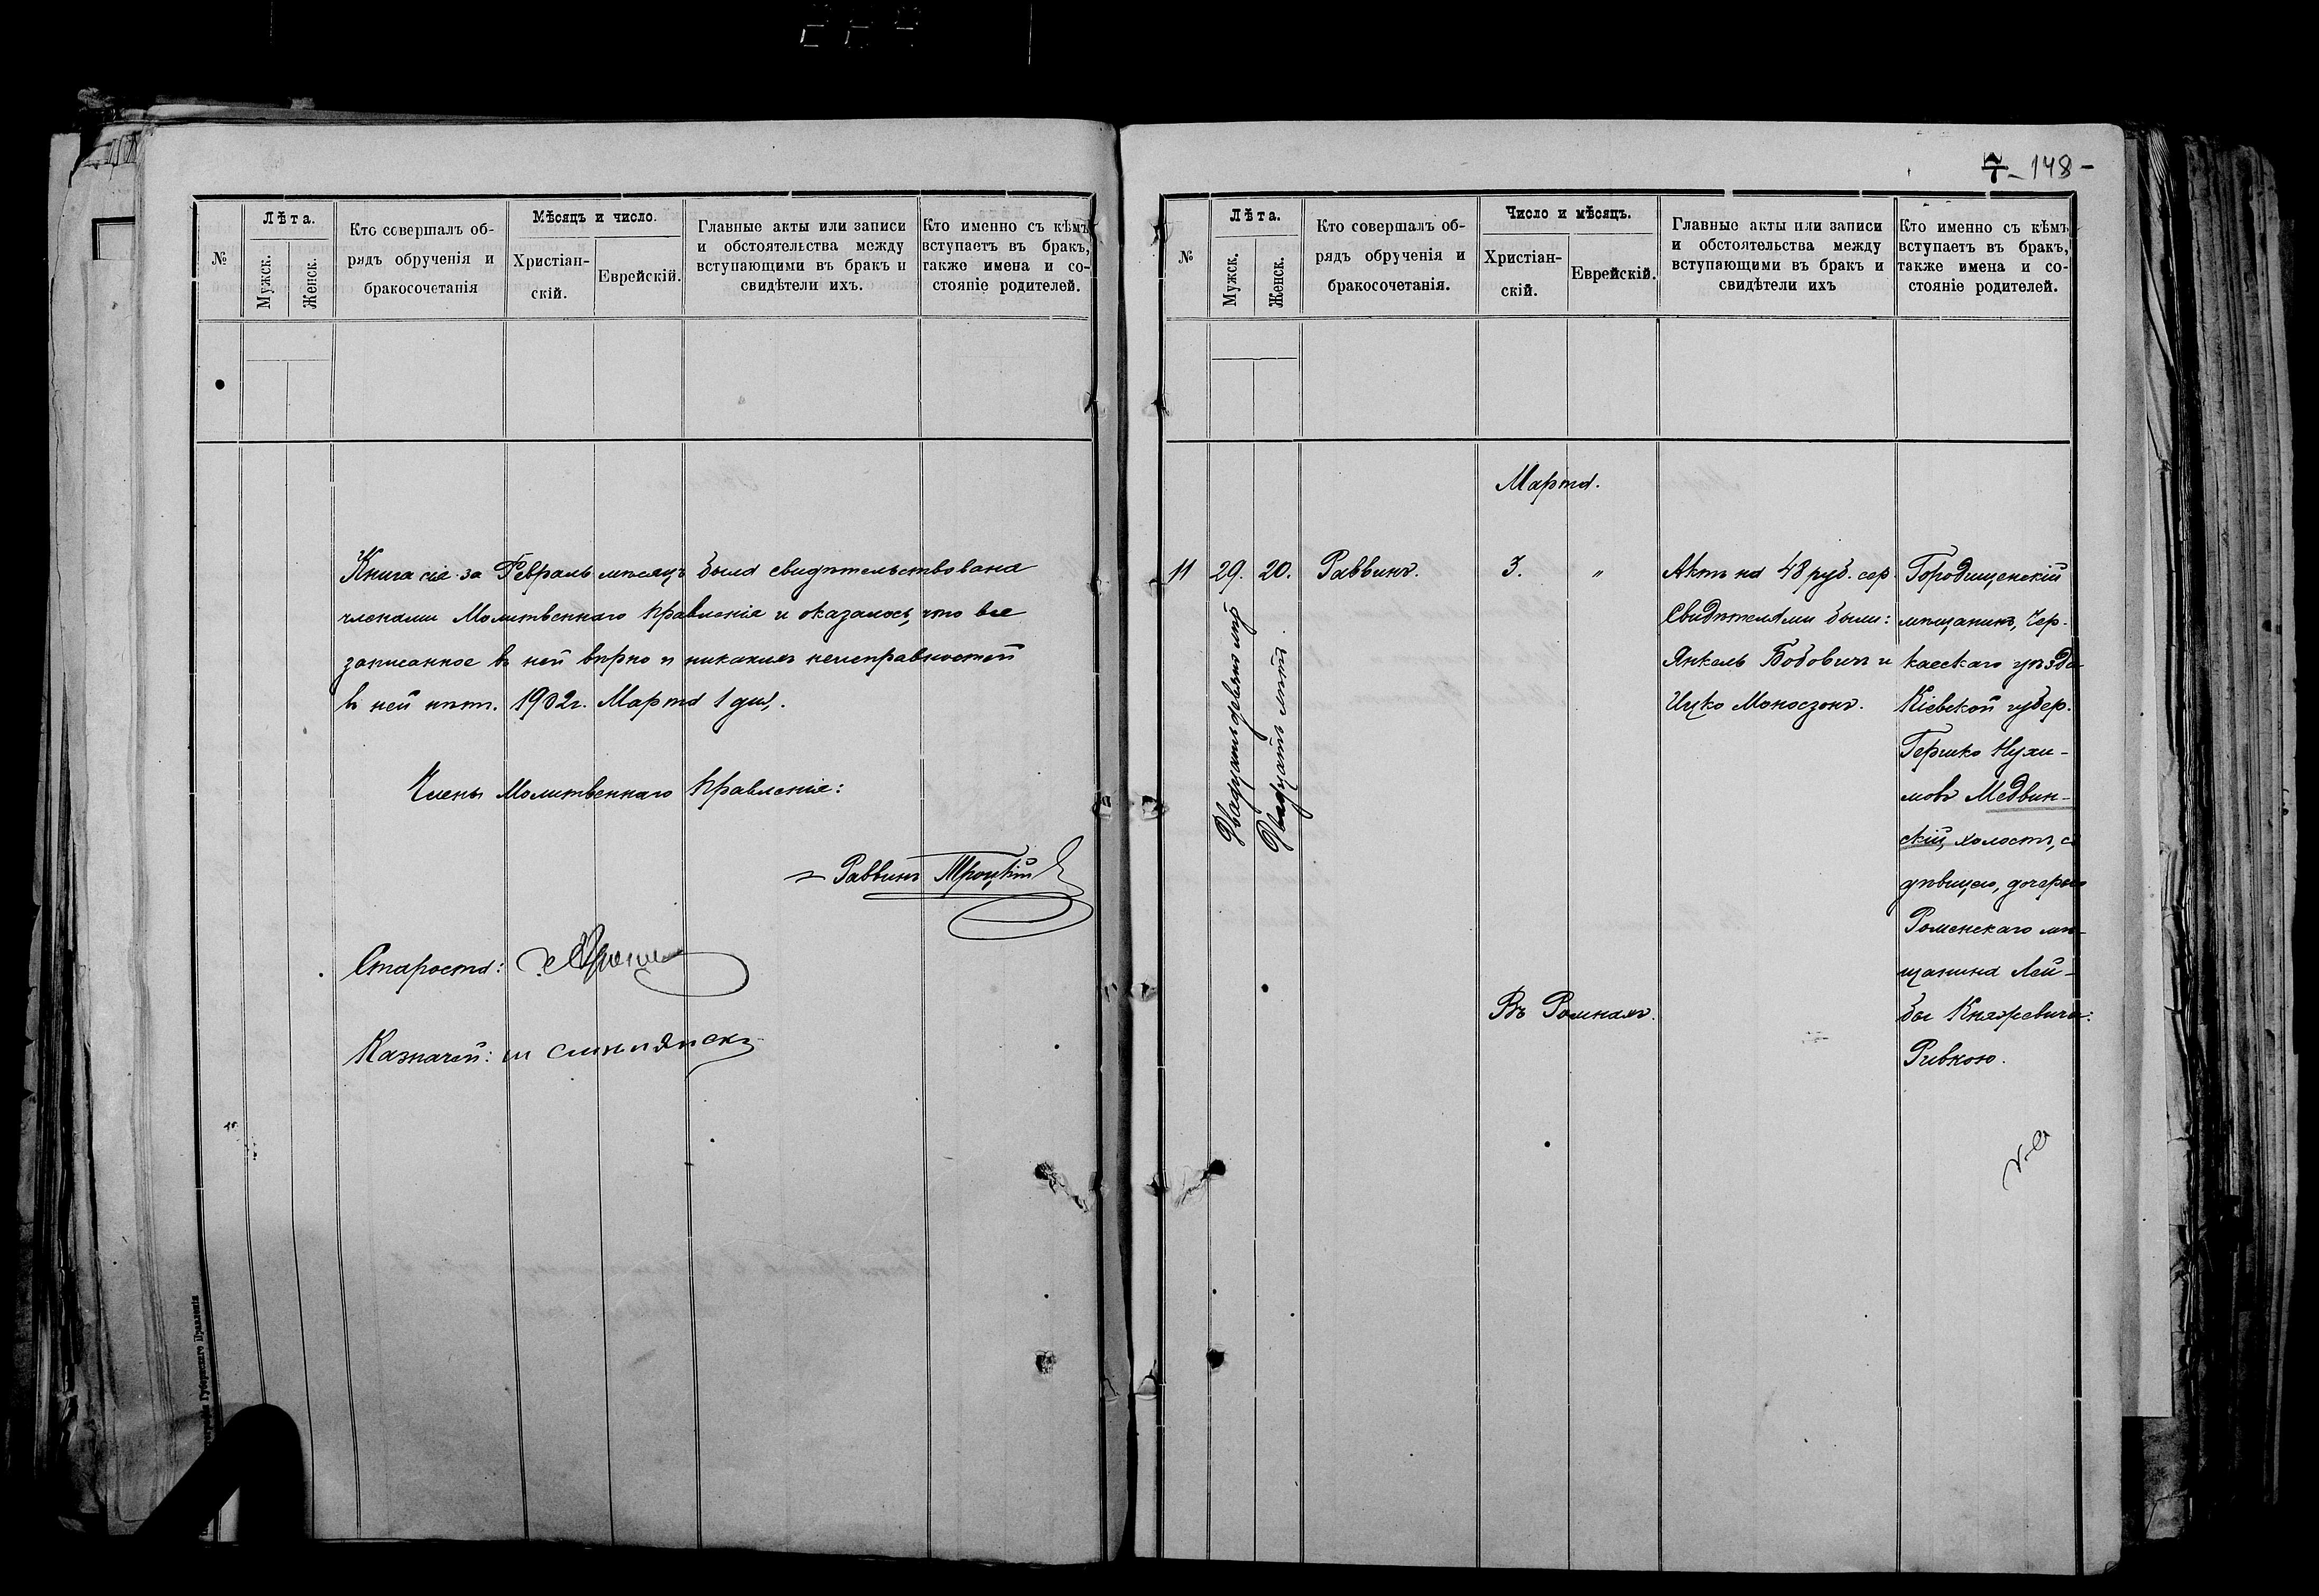 №
Лѣта.
Мужск.
Женск.
Кто совершалъ об-
рядъ обрученія и
бракосочетанія
Мѣсяцъ и число.
Христіан-
скій.
Еврейскій.
Главные акты или записи
и обстоятельства между
вступающими въ бракъ и
свидѣтели ихъ.
Кто именно съ кѣмъ
вступаетъ въ бракъ,
также имена и со-
стояніе родителей.
Книга сія за Февраль мѣсяцъ была свидѣтельствована
членами Молитвеннаго Правленія и оказалось, что все
записанное въ ней вѣрно и никакихъ неисправностей
въ ней нѣтъ. 1902г. Марта 1 дня.
Члены Молитвеннаго Правленія:
Раввинъ Троцкій
Староста:
Казначей:
Губернскаго Правленія
148-
№
Лѣта.
Мужск.
Женск.
Кто совершалъ об-
рядъ обрученія и
бракосочетанія.
Число и мѣсяцъ.
Христіан-
скій.
Еврейскій.
Главные акты или записи
и обстоятельства между
вступающими въ бракъ и
свидѣтели ихъ
Кто именно съ кѣмъ
вступаетъ въ бракъ,
также имена и со-
стояніе родителей.
Марта.
11
29.
Двадцать девять лѣтъ
20.
Двадцать лѣтъ.
Раввинъ.
3.
"
Въ Ромнахъ.
Актъ на 48 руб. сер.
Свидѣтелями были:
Янкель Бобовичъ и
Ицко Моносзонъ.
Городищенскій
мѣщанинъ, Чер-
касскаго уѣзда
Кіевской губер.
Гершко Нухи-
мовъ Медвин-
скій, холостъ, съ
дѣвицею, дочерью
Роменскаго мѣ-
щанина Лей-
бы Княжевича:
Ривкою.